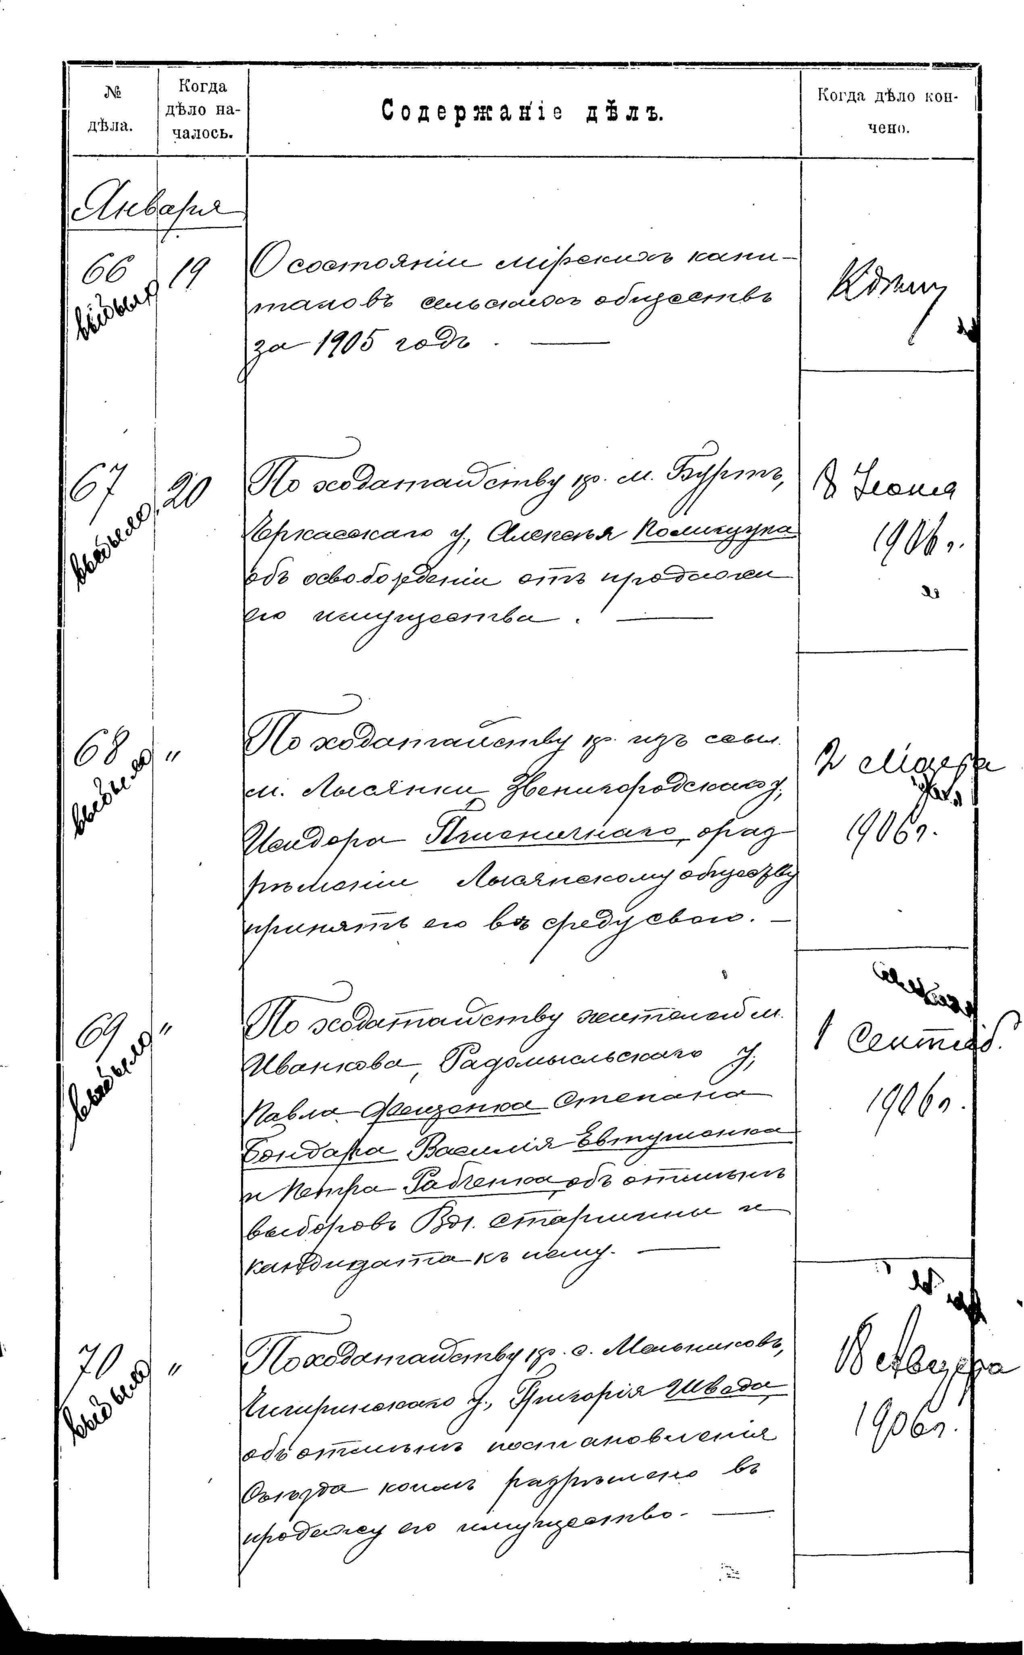 № дѣла.
Когда дѣло на-
чалось.
Содержаніе дѣлъ.
Когда дѣло кон-
чено.
Января
66 выбыло 19
О состояніи мірскихъ капи-
таловъ сельскихъ обществъ
за 1905 годъ. —
67 выбыло 20
По ходатайству кр. м. Буртъ,
Черкасскаго у., Алексѣя
объ освобожденіи отъ продажи
его имущества. —
8 Іюня
1906 г.
68 выбыло "
По ходатайству кр. изъ ссыл.
м. Лысянки, Звенигородскаго у.,
Исидора Пшеничнаго, о раз-
рѣшеніи Лысянскому обществу
принять его въ среду свою. —
2
1906 г.
69 выбыло "
По ходатайству жителей м.
Иванкова, Радомысльскаго у.,
Павла Фещенка Степана
Бондара Василія Евтушенка
и Петра Рабченка, объ отмѣнѣ
выборовъ Вол. старшины и
кандидата къ нему. —
1 Сентяб.
1906 г.
70 выбыло "
По ходатайству кр. с. Мельниковъ,
Чигиринскаго у., Григорія Шведа,
объ отмѣнѣ постановленія
Съѣзда коимъ разрѣшено въ
продажу его имущество. —
18 Августа
1906 г.